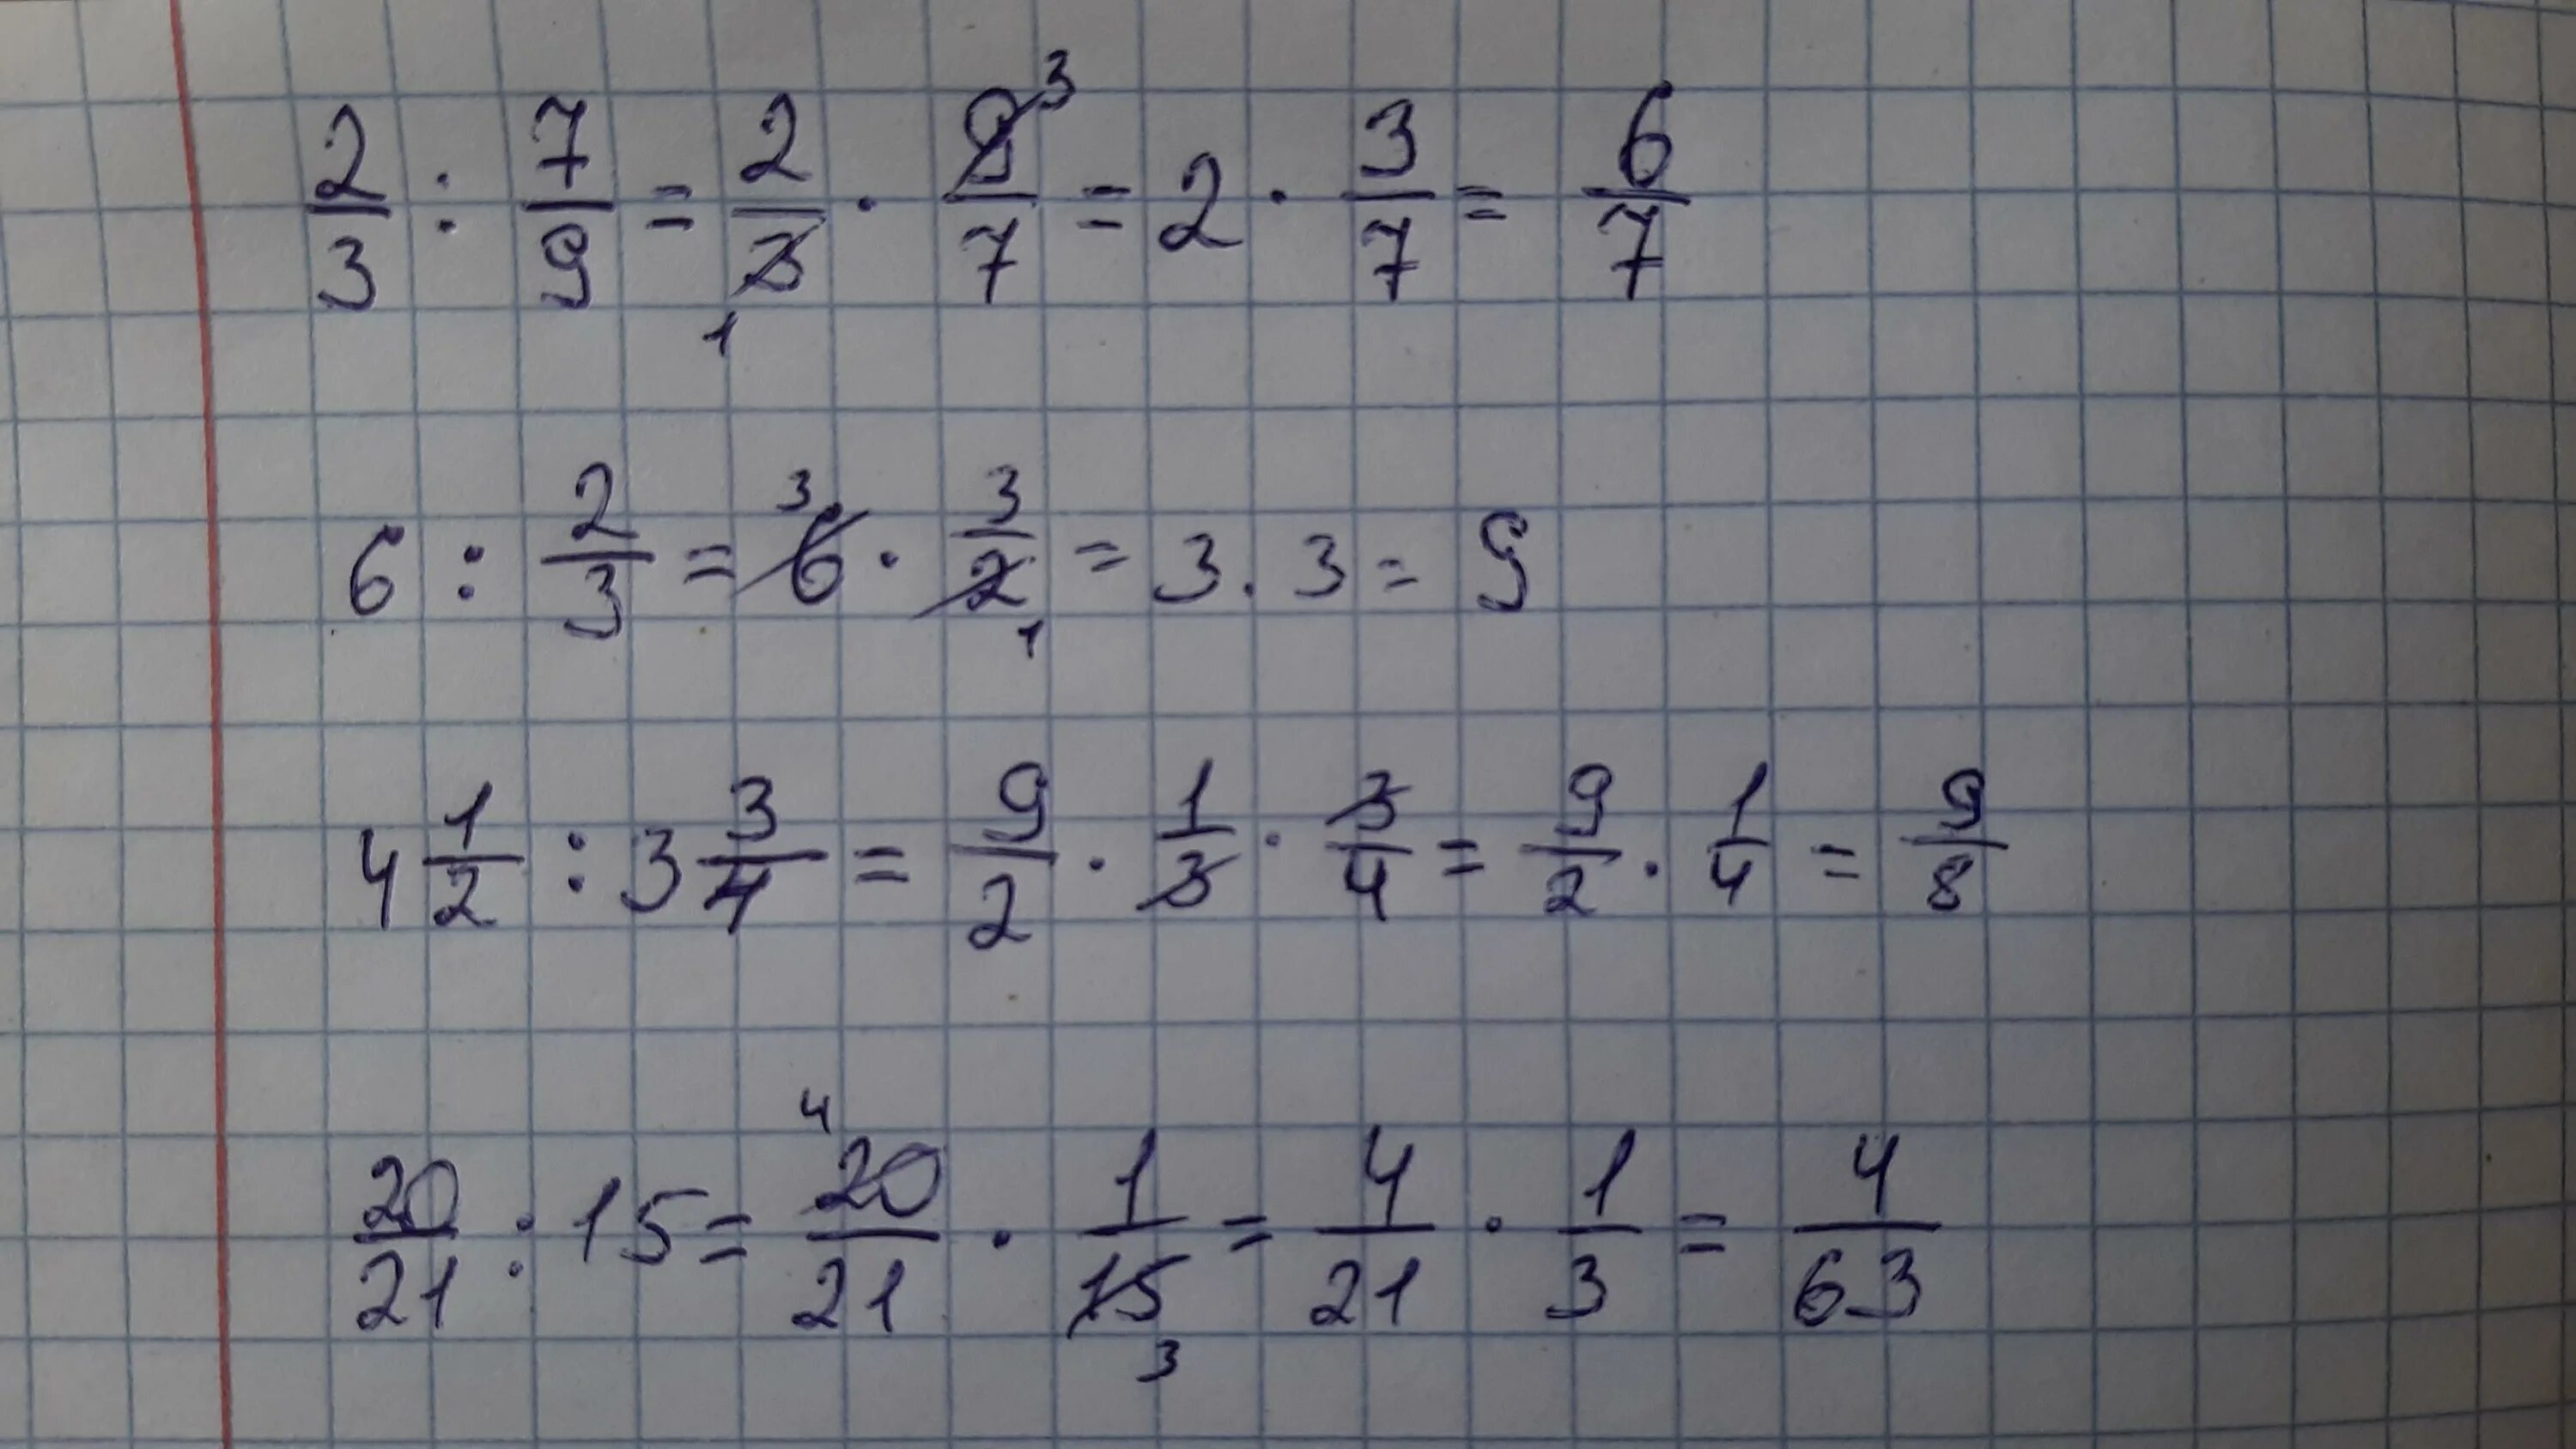 2/3 : 7/9 = 2/3 1 · 9/7 3 = 2 · 3/7 = 6/7
6 : 2/3 = 6 3 · 3/2 1 = 3 · 3 = 9
4 1/2 : 3 3/4 = 9/2 · 1/3 · 3/4 = 9/2 · 1/4 = 9/8
20/21 : 15 = 4 20/21 · 1/15 3 = 4/21 · 1/3 = 4/63